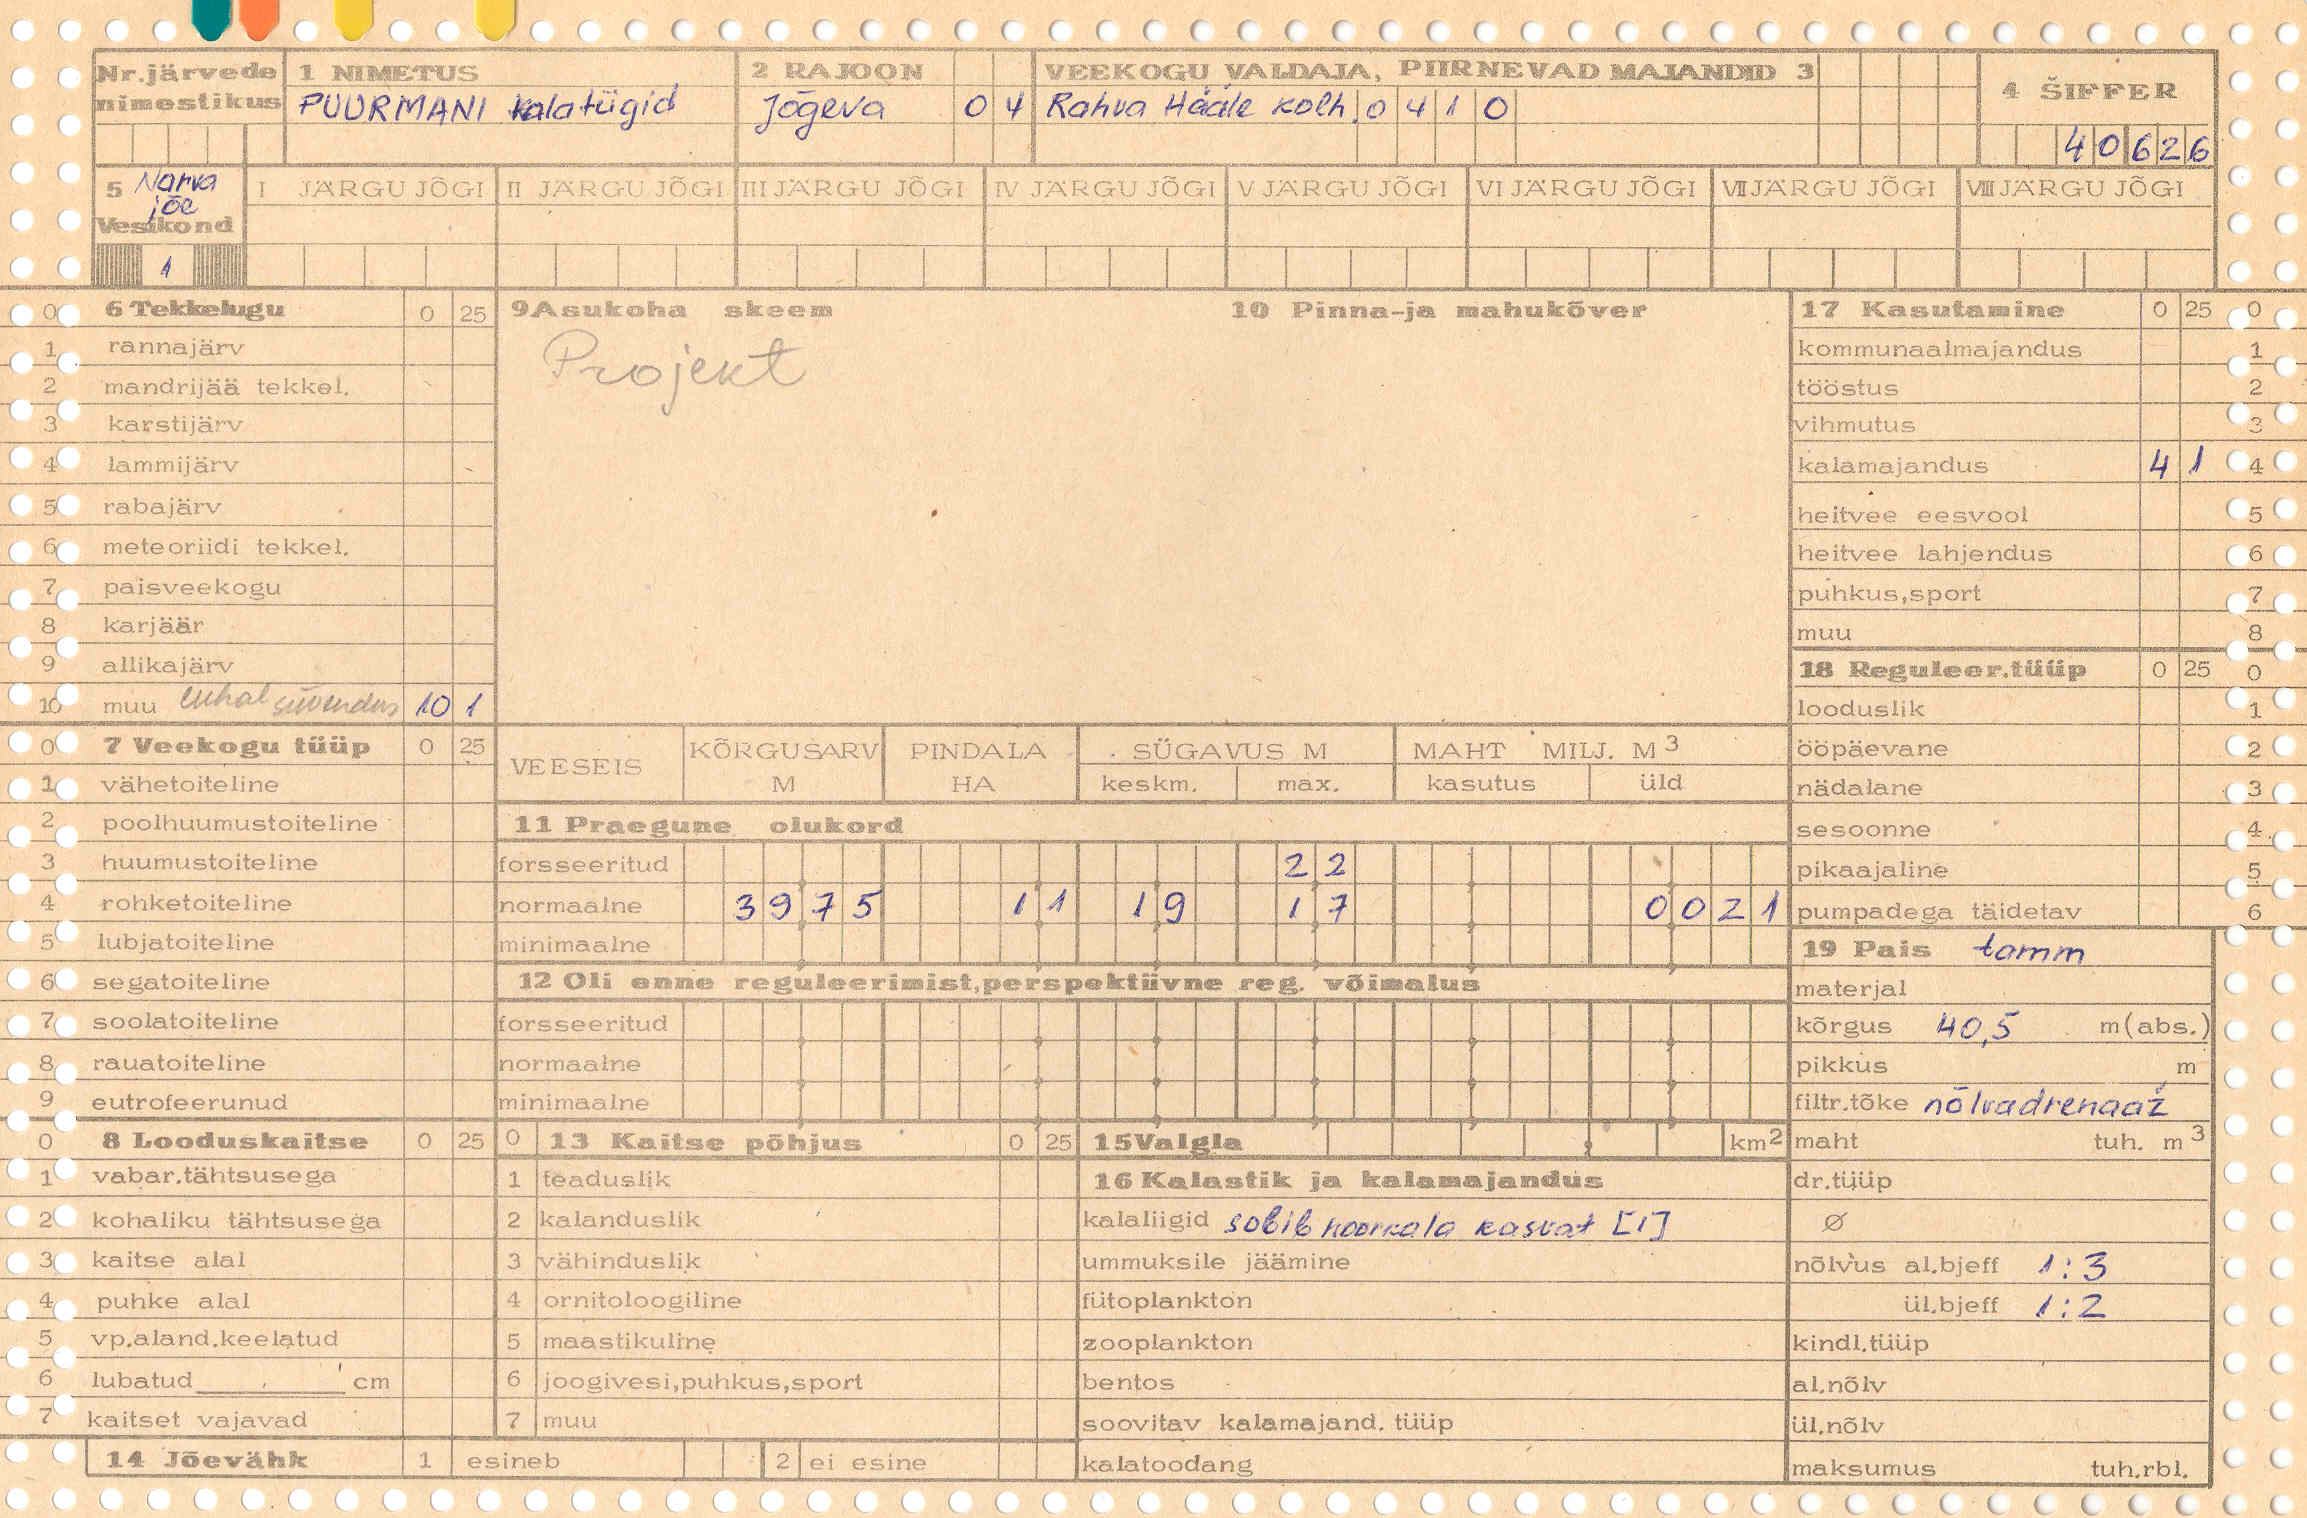 Nr.järvede nimestikus
1 NIMETUS
PUURMANI kalatiigid
2 RAJOON
Jõgeva 0 4
VEEKOGU VALDAJA, PIIRNEVAD MAJANDID 3
Rahva Hääle kolh. 0 4 1 0
4 ŠIFFER
4 0 6 2 6
5 Narva jõe
Vesikond
1
I JÄRGU JÕGI II JÄRGU JÕGI III JÄRGU JÕGI IV JÄRGU JÕGI V JÄRGU JÕGI VI JÄRGU JÕGI VII JÄRGU JÕGI VIII JÄRGU JÕGI
0 6 Tekkelugu 0 25
1 rannajärv
2 mandrijää tekkel.
3 karstijärv
4 lammijärv
5 rabajärv
6 meteoriidi tekkel.
7 paisveekogu
8 karjäär
9 allikajärv
10 muu süvendus 10 1
0 7 Veekogu tüüp 0 25
1 vähetoiteline
2 poolhuumustoiteline
3 huumustoiteline
4 rohketoiteline
5 lubjatoiteline
6 segatoiteline
7 soolatoiteline
8 rauatoiteline
9 eutrofeerunud
0 8 Looduskaitse 0 25
1 vabar.tähtsusega
2 kohaliku tähtsusega
3 kaitse alal
4 puhke alal
5 vp.aland.keelatud
6 lubatud cm
7 kaitset vajavad
14 Jõevähk 1 esineb 2 ei esine
9 Asukoha skeem
10 Pinna-ja mahukõver
Projekt
VEESEIS KÕRGUSARV M PINDALA HA SÜGAVUS M keskm. max. MAHT MILJ. M3 kasutus üld
11 Praegune olukord
forsseeritud 2 2
normaalne 3 9 7 5 1 1 1 9 1 7 0 0 2 1
minimaalne
12 Oli enne reguleerimist,perspektiivne reg. võimalus
forsseeritud
normaalne
minimaalne
0 13 Kaitse põhjus 0 25
1 teaduslik
2 kalanduslik
3 vähinduslik
4 ornitoloogiline
5 maastikuline
6 joogivesi,puhkus,sport
7 muu
15 Valgla km2
16 Kalastik ja kalamajandus
kalaliigid sobib noorkala kasvat [1]
ummuksile jäämine
fütoplankton
zooplankton
bentos
soovitav kalamajand. tüüp
kalatoodang
17 Kasutamine 0 25 0
kommunaalmajandus 1
tööstus 2
vihmutus 3
kalamajandus 4 1 4
heitvee eesvool 5
heitvee lahjendus 6
puhkus,sport 7
muu 8
18 Reguleer.tüüp 0 25 0
looduslik 1
ööpäevane 2
nädalane 3
sesoonne 4
pikaajaline 5
pumpadega täidetav 6
19 Pais tamm
materjal
kõrgus 40,5 m(abs.)
pikkus m
filtr.tõke nõlvadrenaaž
maht tuh. m3
dr.tüüp
Ø
nõlvus al.bjeff 1:3
ül.bjeff 1:2
kindl.tüüp
al.nõlv
ül.nõlv
maksumus tuh.rbl.